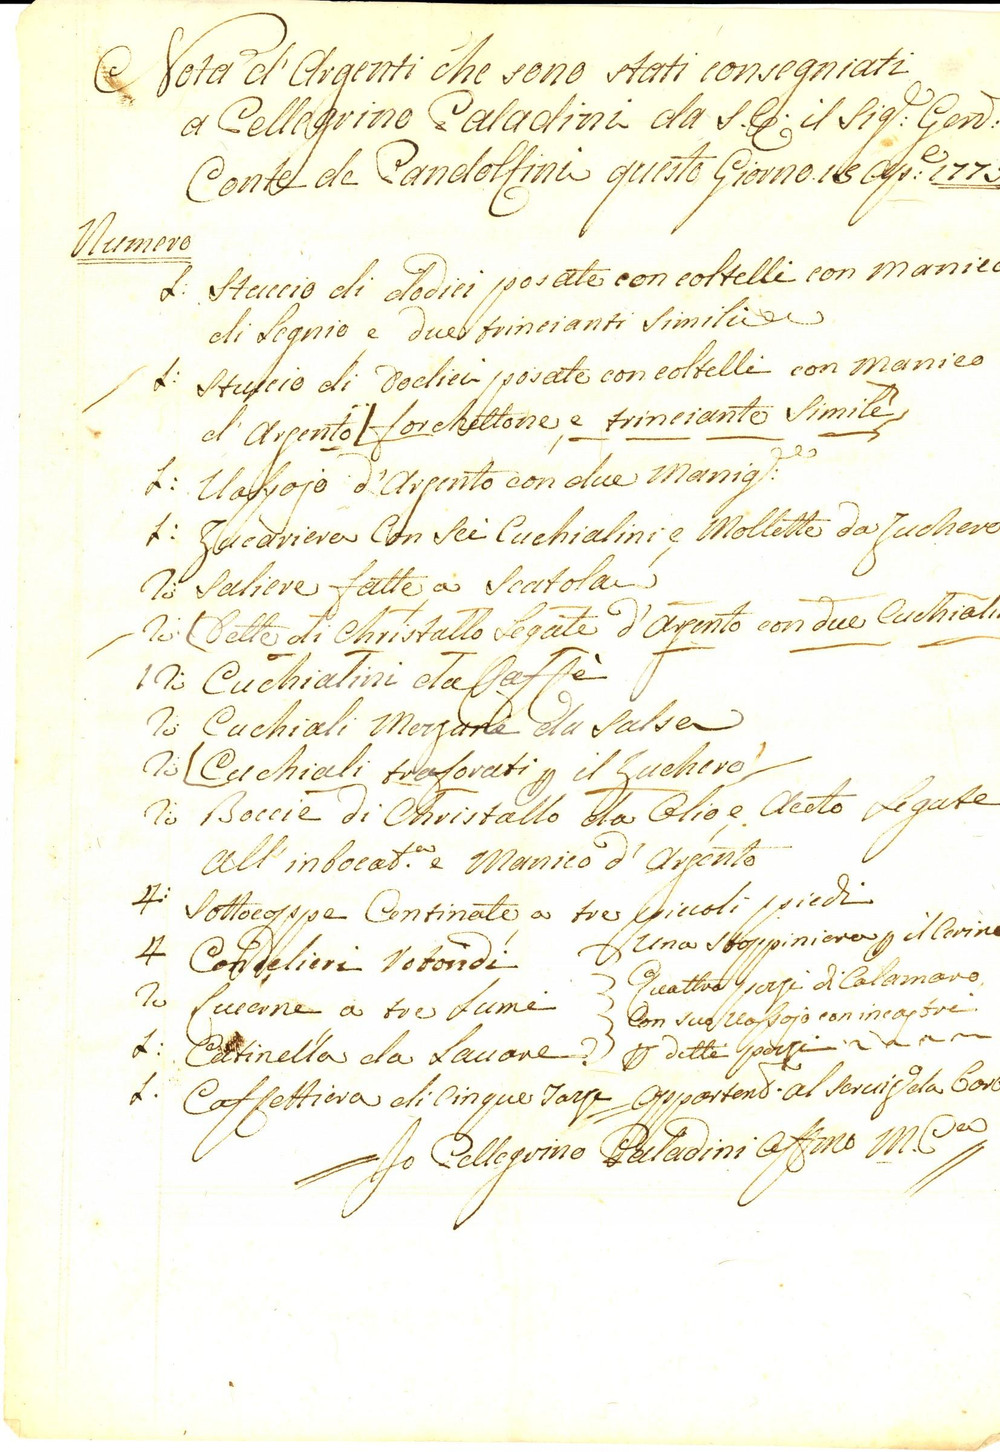 Nota d'Argenti che sono stati consegniati
a Pellegrino Paladini da S. E. il Sig.e Gen.
Conte de Pandolfini questo Giorno 18 Ap.e 1773
Numero
1: Stuccio di dodici posate con coltelli con manico
di Legnio e due trincianti simili
1: Stuccio di dodici posate con coltelli con manico
d'Argento forchettone, e trinciante simile
1: Vassojo d'Argento con due Manig.
1: Zucariera con sei Cuchialini, e Mollette da Zuchero
2: Saliere fatte a Scatola
2: Dette di Christallo Legate d'Argento con due Cuchiali
12: Cuchialini da Caffè
2: Cuchiali Mezzani da Salsa
2: Cuchiali traforati p il Zuchero
2: Boccie di Christallo da Olio e Aceto Legate
all'inbocat.a e Manico d'Argento
4: Sottocoppe Centinate a tre piccoli piedi
4 Candelieri Rotondi
Una Stoppiniera p il Cerino
2: Lucerne a tre Lumi
Quattro pezzi di Calamaro,
Con suo Vassojo con incastri
1: Catinella da Lavare
p detti pezzi
1. Caffettiera di Cinque Tazze appartend. al servig.o da
Io Pellegrino Paladini Affmo M. P.a